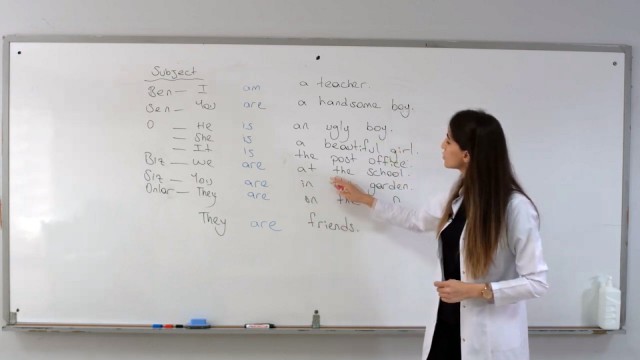 Subject
Ben — I am a teacher.
Sen — You are a handsome boy.
O — He is an ugly boy.
— She is a beautiful girl.
— It is the post office.
Biz — we are at the school.
Siz — You are in garden.
Onlar — They are on the n
They are friends.